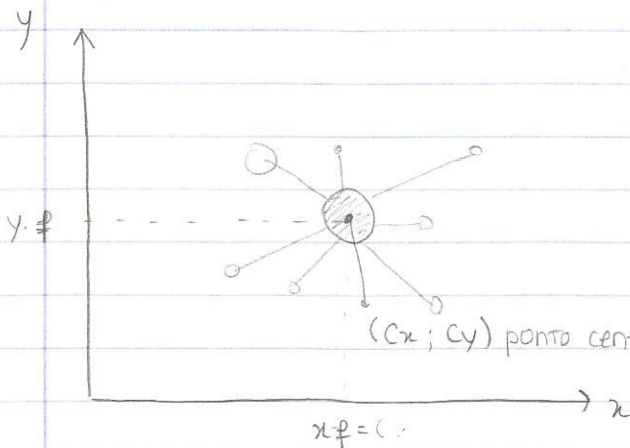 y
y.f
(Cx ; Cy) ponto cen
x
x.f = (